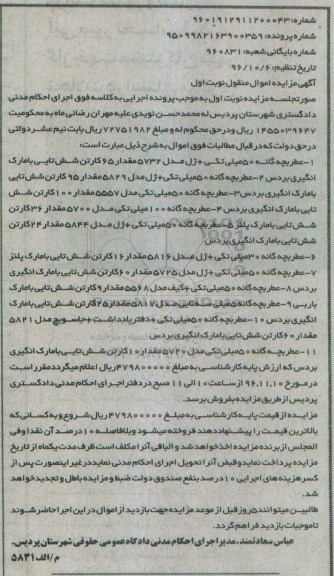 شماره: 9601912911200043
شماره پرونده: 9509982163900359
شماره بایگانی شعبه: 960831
تاریخ تنظیم: 96/10/6
آگهی مزایده اموال منقول نوبت اول
صورتجلسه مزایده نوبت اول به موجب پرونده اجرایی به کلاسه فوق اجرای احکام مدنی
دادگستری شهرستان پردیس له محمدحسن نویدی علیه مهران رضائی ماه به محکومیت
1455039647 ریال ودرحق محکوم له و مبلغ 72751982 ریال بابت نیم عشر دولتی
درحق دولت که در قبال مطالبات فوق اموال به شرح ذیل عبارت است:
1-عطربچه گانه 50میلی تکی +ژل مدل 5732 مقدار 65کارتن شش تایی بامارک
انگیری بردس 2-عطربچه گانه 50میلی تکی+ژل مدل 5829 مقدار 95 کارتن شش تایی
بامارک انگیری بردس 3-عطربچه گانه 50میلی تکی مدل 5557 مقدار 100کارتن شش
تایی بامارک انگیری بردس 4-عطربچه گانه 100میلی تکی مدل 5700 مقدار 36کارتن
شش تایی بامارک پلنز 5-عطربچه گانه 50میلی تکی +ژل مدل 5844 مقدار 24کارتن
شش تایی بامارک انگیری بردس
6-عطربچه گانه 30میلی تکی +ژل مدل 5816 مقدار 16کارتن شش تایی بامارک پلنز
7-عطربچه گانه 50میلی تکی+ژل مدل 5725مقدار 60کارتن شش تایی بامارک انگیری
بردس 8-عطربچه گانه 50میلی تکی+کیف مدل 5568مقدار 9کارتن شش تایی بامارک
باربی 9-عطربچه گانه 50میلی سه تایی مدل 5817مقدار 25کارتن شش تایی بامارک
انگیری بردس 10-عطربچه گانه 50میلی تکی+دفتریادداشت +جاسویچ مدل 5821
مقدار 60کارتن شش تایی بامارک انگیری بردس
11-عطربچه گانه 50میلی تکی مدل 5720مقدار 10کارتن شش تایی بامارک انگیری
بردس که ارزش پایه کارشناسی به مبلغ 479800000 ریال اعلام میگردد مقرر است
در مورخ 96.11.10 از ساعت 10الی 11 صبح در دفتر اجرای احکام مدنی دادگستری
پردیس از طریق مزایده بفروش برسد.
مزایده از قیمت پایه کارشناسی به مبلغ 479800000 ریال شروع و به کسانی که
بالاترین قیمت را پیشنهاد دهند فروخته میشود و بلافاصله 10 درصد آن نقدا و فی
المجلس از برنده مزایده اخذ خواهد شد و الباقی آنرا مکلف است ظرف مدت یکماه از تاریخ
مزایده پرداخت نماید و قبض آنرا تحویل اجرای احکام مدنی نماید در غیر اینصورت پس از
کسر هزینه های اجرایی 10درصد بنفع صندوق دولت ضبط و مزایده باطل و تجدید خواهد
شد.
طالبین میتوانند 5روز قبل از موعد مزایده جهت بازدید از اموال در این اجرا حاضر شوند
تا موجبات بازدید فراهم گردد.
عباس سعادتمند. مدیر اجرای احکام مدنی دادگاه عمومی حقوقی شهرستان پردیس.
م/الف 5831